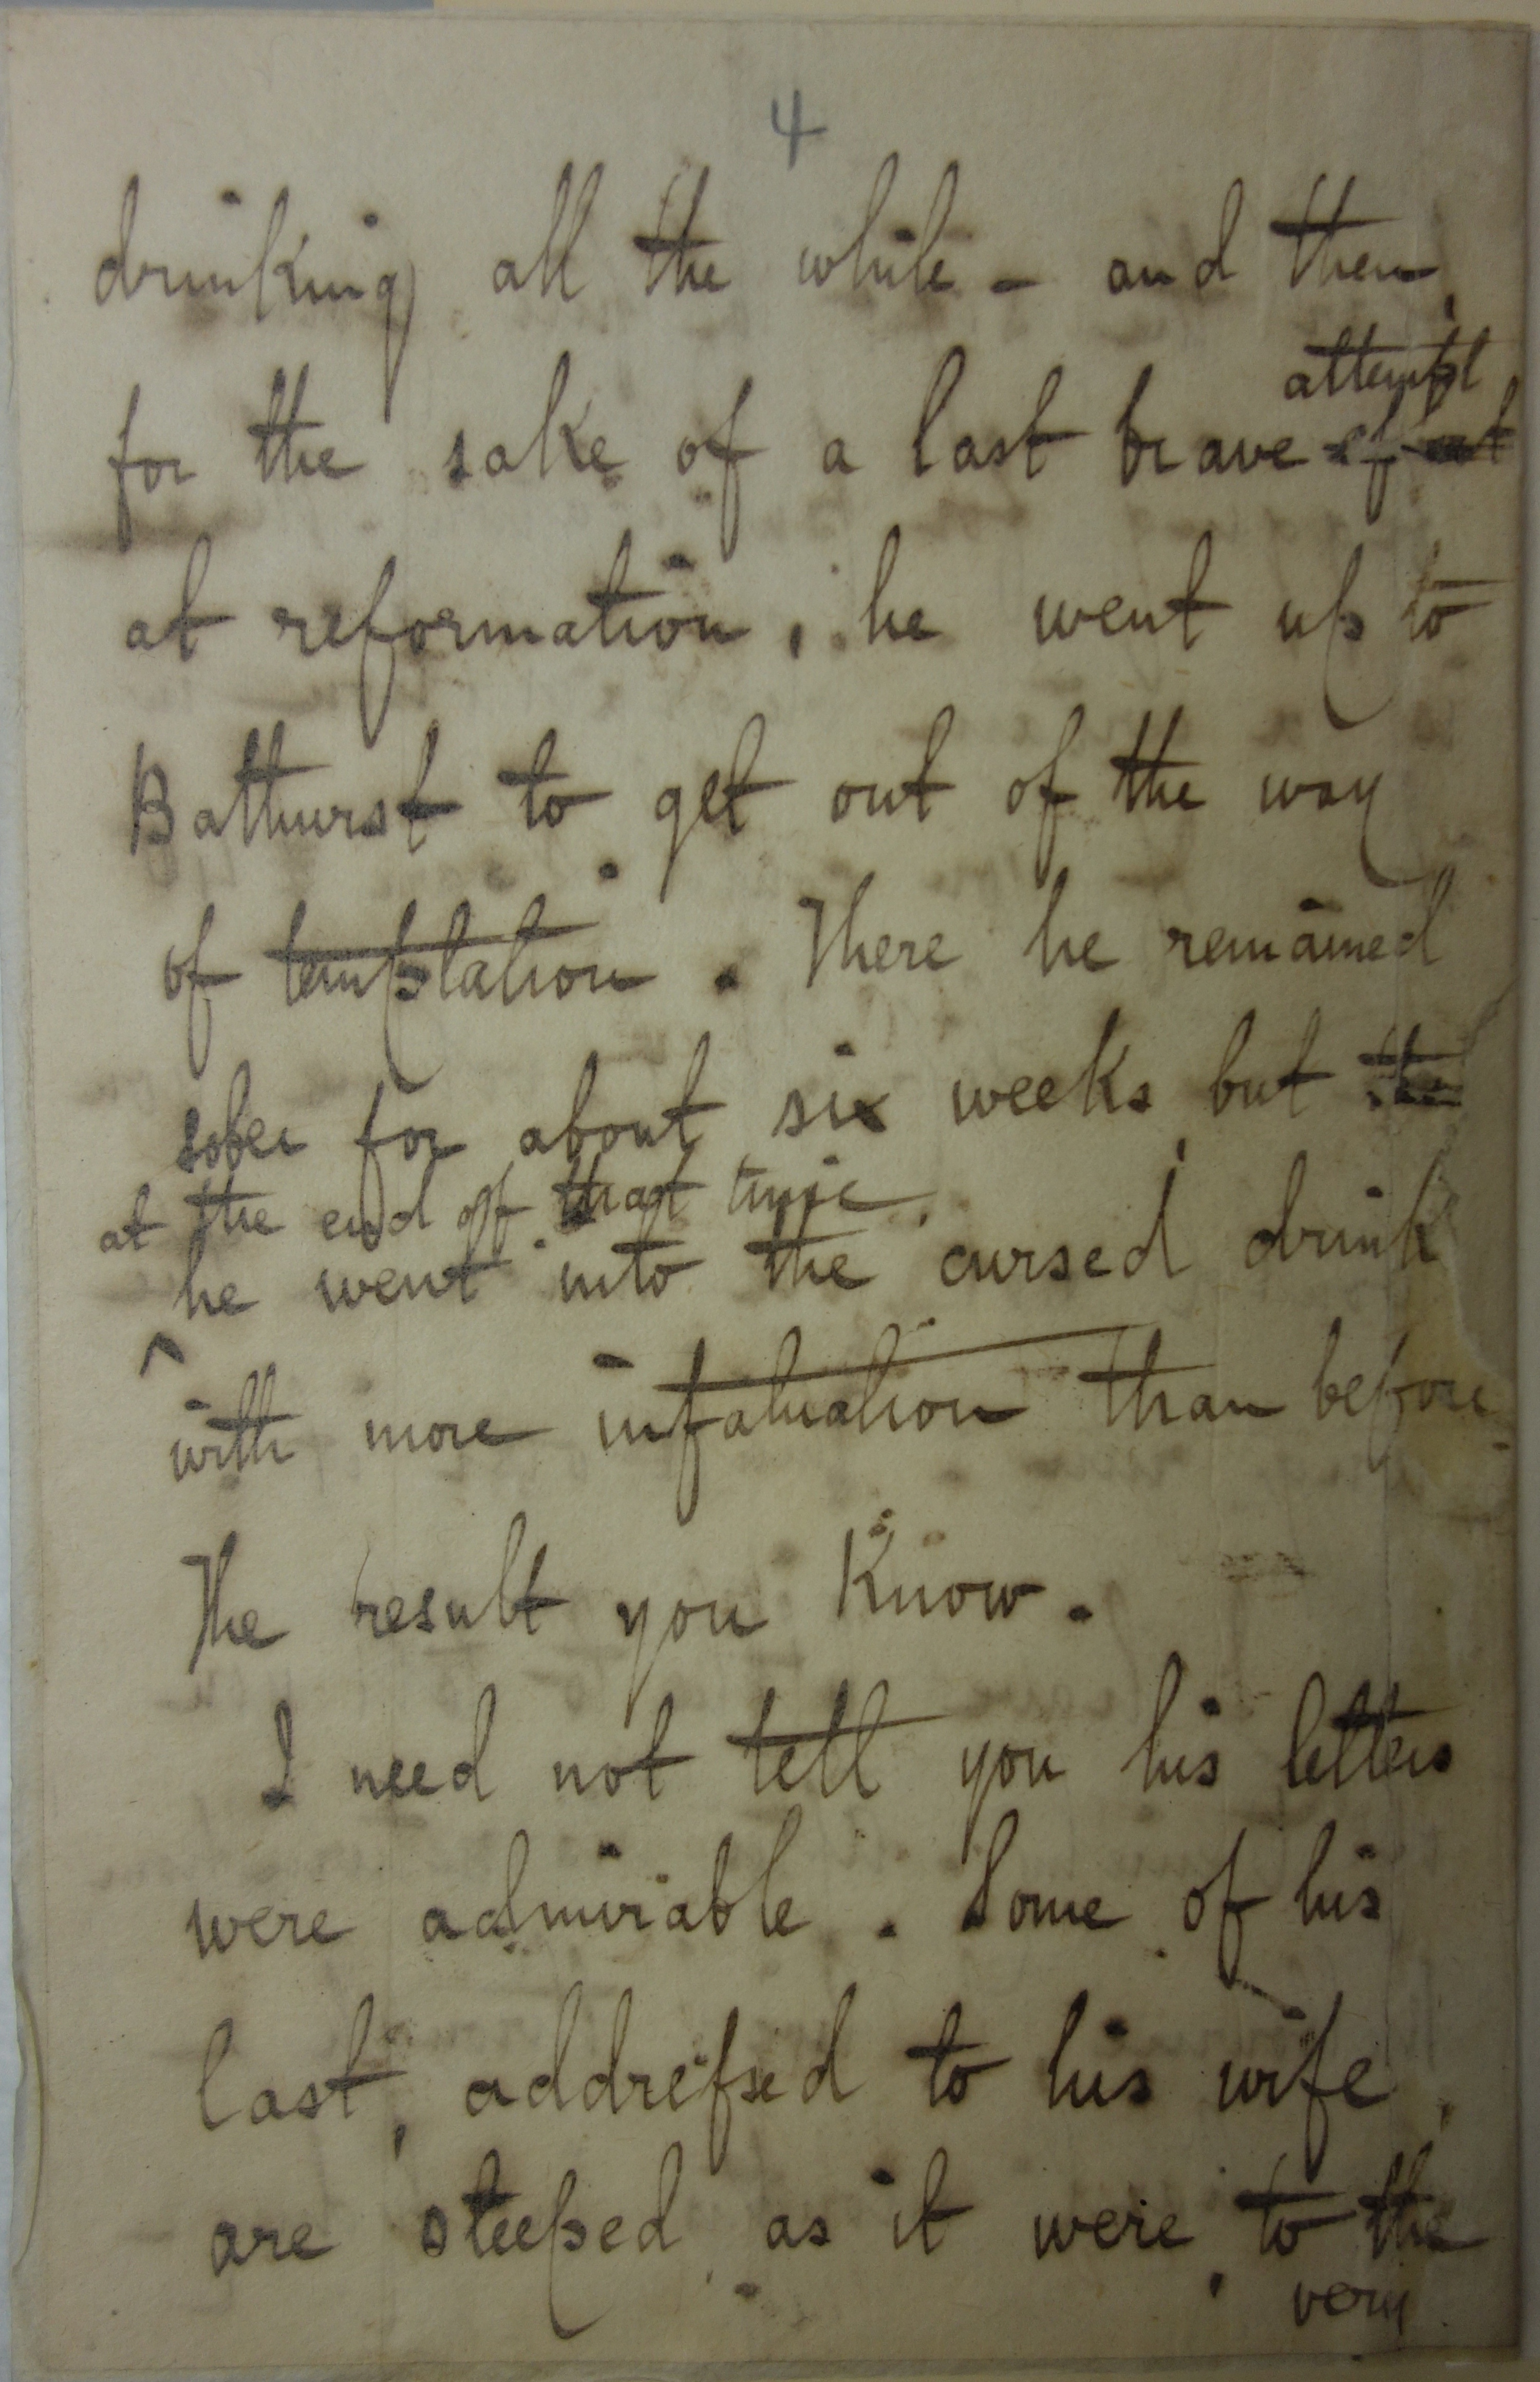 4
drinking all the while - and then,
attempt
for the sake of a last brave effort
at reformation, he went up to
Bathurst to get out of the way
of temptation. There he remained
sober for about six weeks, but the
at the end of that time,
he went into the cursed drink
^
with more infatuation than before.
The result you know.
I need not tell you his letters
were admirable. Some of his
last, addressed to his wife,
are steeped, as it were, to the
very